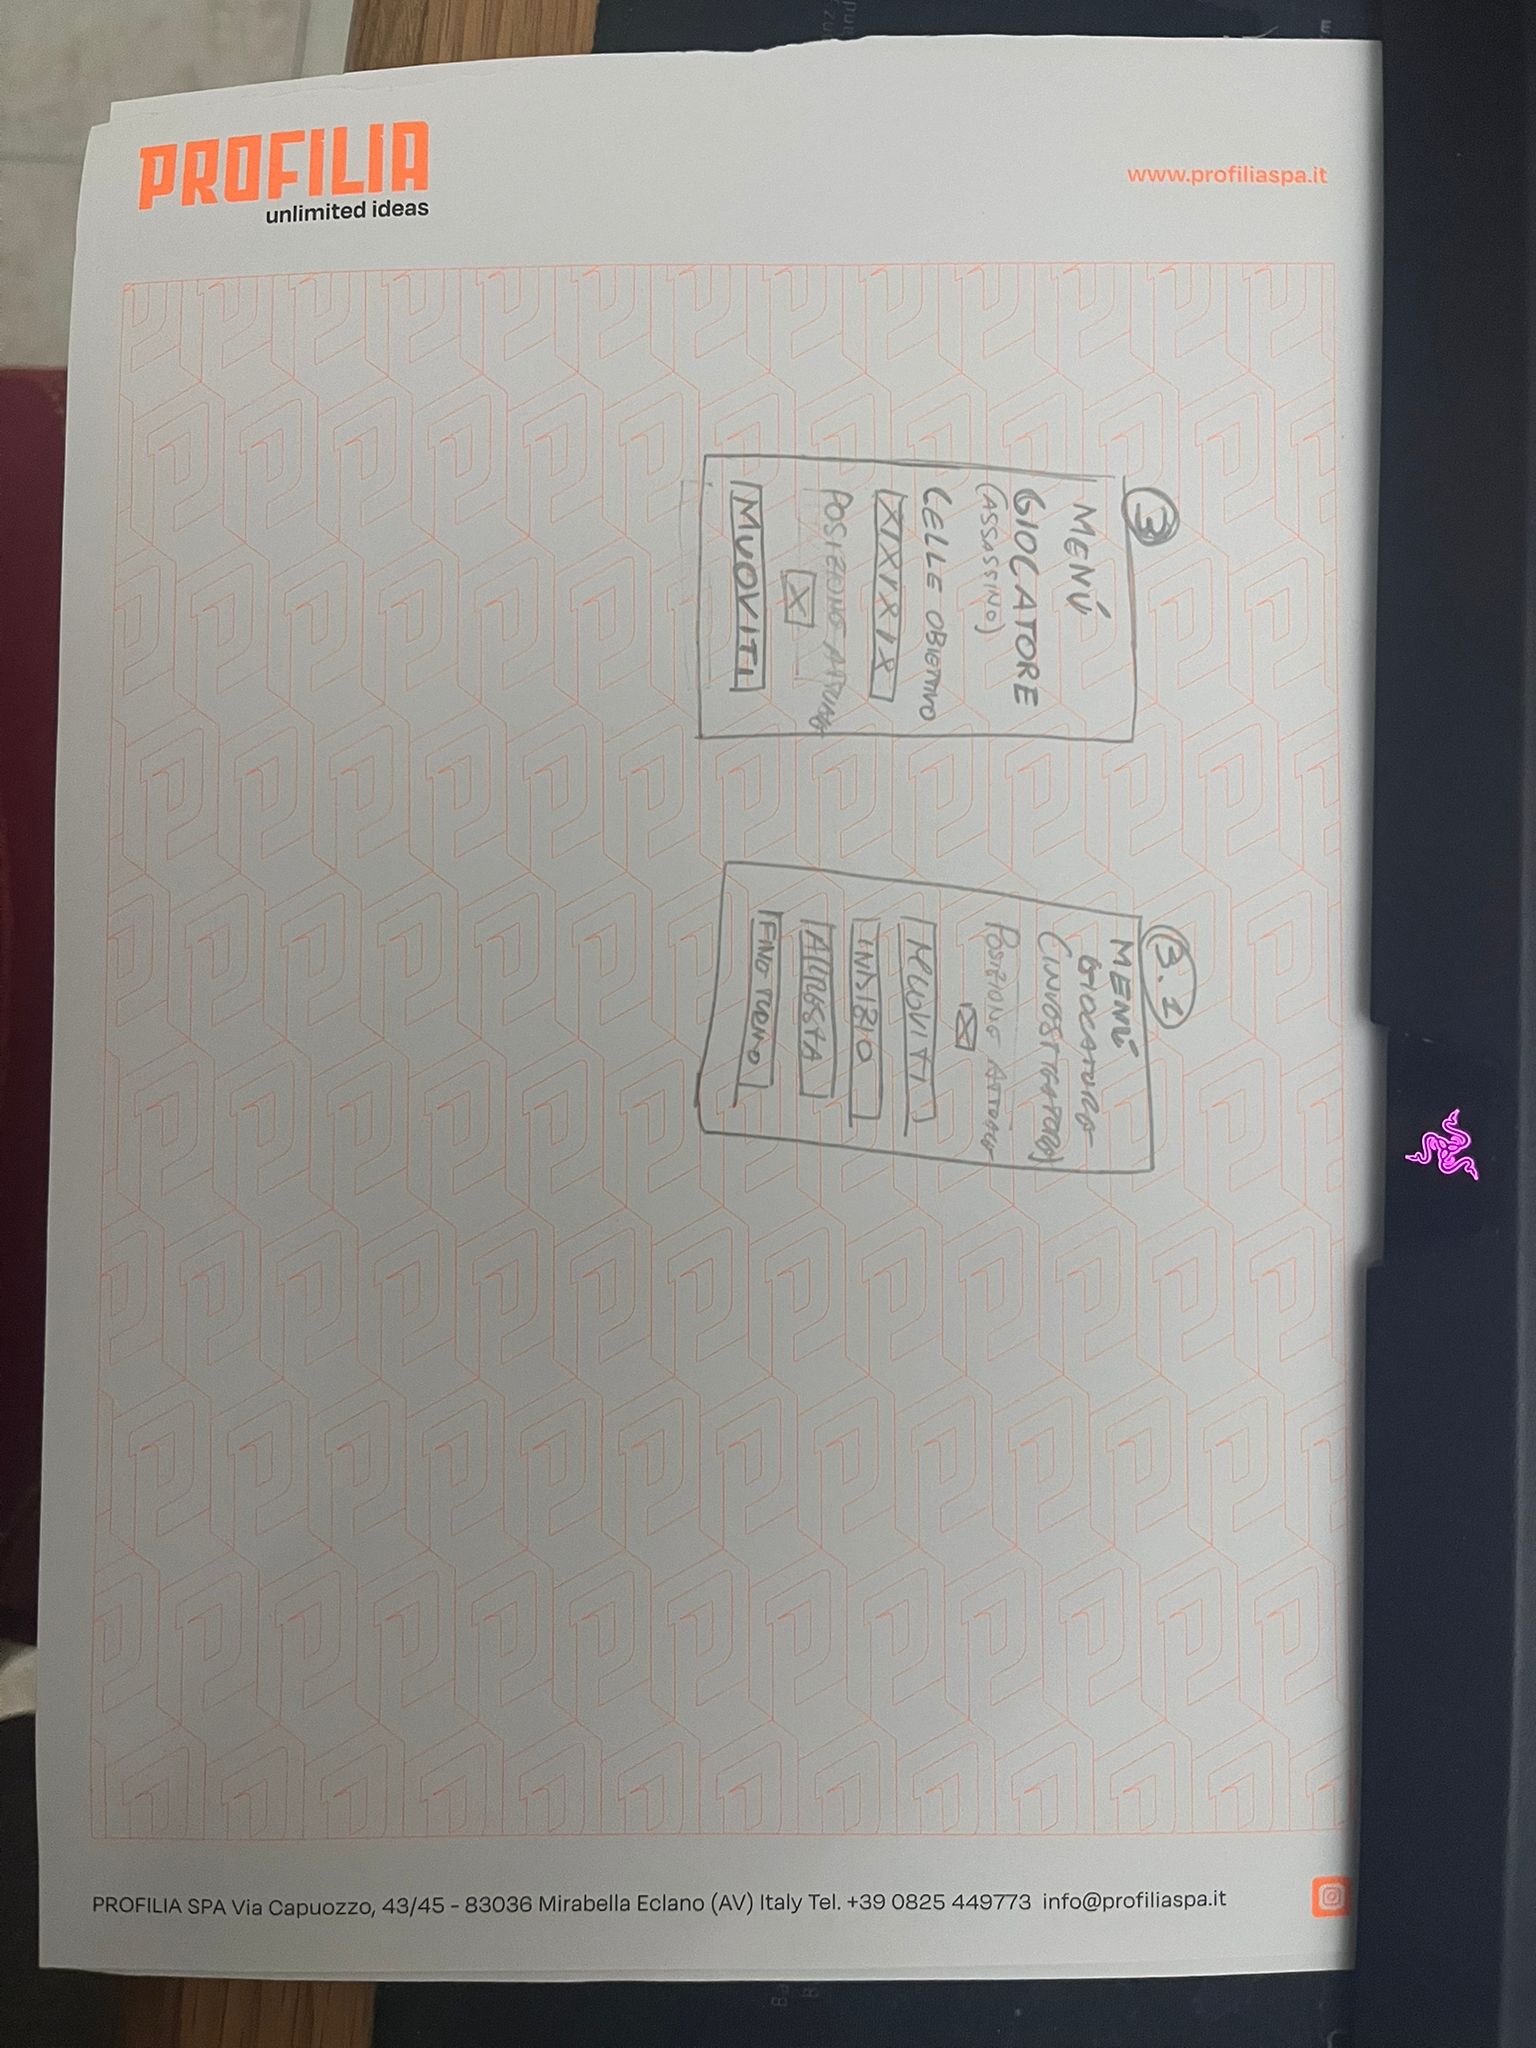 PROFILIA
unlimited ideas
www.profiliaspa.it
3
MENÚ
GIOCATORE
(ASSASSINO)
CELLE OBIETTIVO
X|X|X|X
POSIZIONE ATTUALE
X
MUOVITI
3.1
MENÚ
GIOCATORE
(INVESTIGATORE)
POSIZIONE ATTUALE
X
MUOVITI
INDIZIO
ARRESTA
FINE TURNO
PROFILIA SPA Via Capuozzo, 43/45 - 83036 Mirabella Eclano (AV) Italy Tel. +39 0825 449773 info@profiliaspa.it